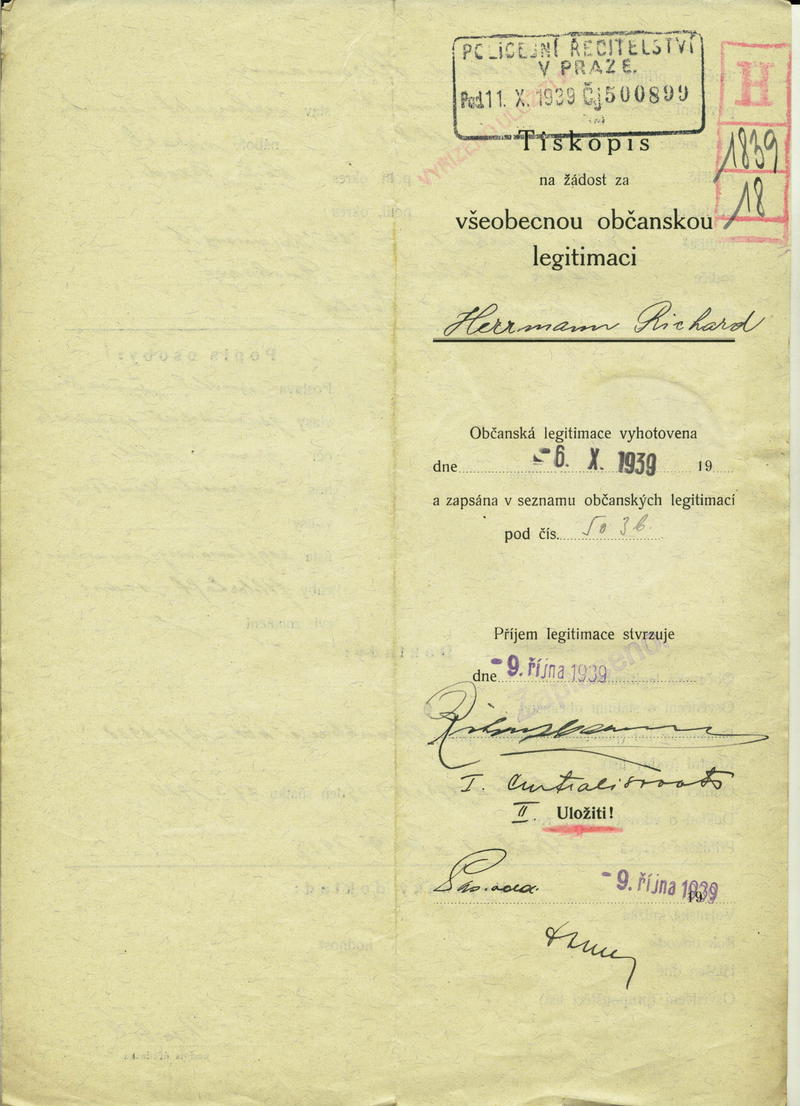 POLICEJNÍ ŘEDITELSTVÍ
V PRAZE.
Pod 11. X. 1939 Čj 500899
H
1839
18
Tiskopis
na žádost za
všeobecnou občanskou
legitimaci
Herrmann Richard
Občanská legitimace vyhotovena
dne - 6. X. 1939 19
a zapsána v seznamu občanských legitimací
pod čís. 5036
Příjem legitimace stvrzuje
dne - 9. října 1939
I.
II. Uložiti!
- 9. října 1939
19